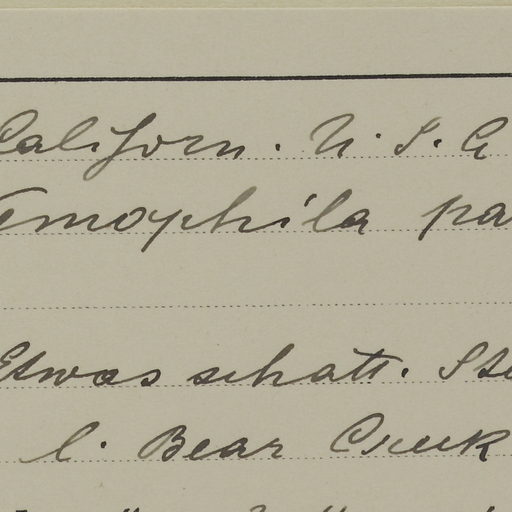 Californ. U.S.A
Nemophila pa
Etwas schatt. Ste
l. Bear Creek